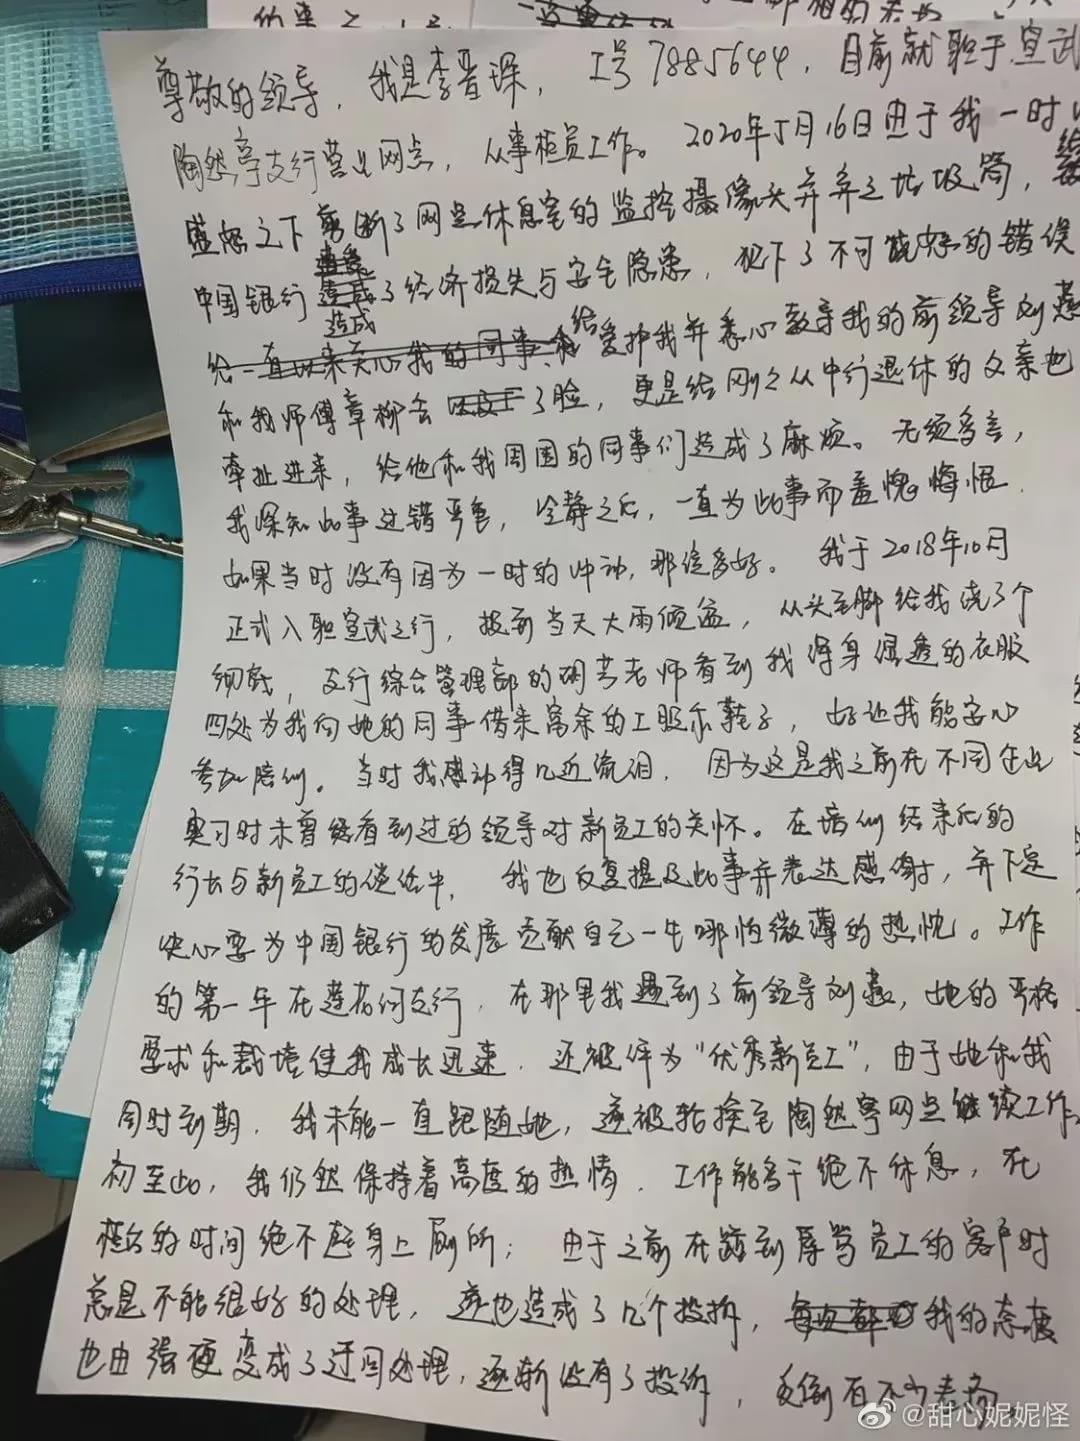 尊敬的领导，我是李晋琛，工号7885644，目前就职于宣武
陶然亭支行营业网点，从事柜员工作。2020年5月16日由于我一时
盛怒之下剪断了网点休息室的监控摄像头并弃之垃圾筒，给
中国银行造成了经济损失与安全隐患，犯下了不可饶恕的错误
给爱护我并悉心教导我的前领导刘燕
和我师傅章柳去了脸，更是给刚刚从中行退休的父亲也
牵扯进来，给他和我周围的同事们造成了麻烦。无须多言，
我深知此事过错严重，冷静之后，一直为此事而羞愧悔恨
如果当时没有因为一时的冲动，那该多好。我于2018年10月
正式入职宣武支行，报到当天大雨倾盆，从头至脚给我浇了个
彻底，支行综合管理部的胡芳老师看到我浑身湿透的衣服
四处为我向她的同事借来富余的工服和鞋子，好让我能安心
参加培训。当时我感动得几近流泪，因为这是我之前在不同企业
实习时未曾经看到过的领导对新员工的关怀。在培训结束后的
行长与新员工的谈话中，我也反复提及此事并表达感谢，并下定
决心要为中国银行的发展贡献自己一生哪怕微薄的热忱。工作
的第一年在莲花河支行，在那里我遇到了前领导刘燕，她的严格
要求和栽培使我成长迅速，还被评为“优秀新员工”，由于她和我
同时到期，我未能一直跟随她，遂被轮换至陶然亭网点继续工作
初至此，我仍然保持着高度的热情，工作能多干绝不休息，在
柜台的时间绝不起身上厕所；由于之前在踫到辱骂员工的客户时
总是不能很好的处理，遂也造成了几个投诉，我的态度
也由强硬变成了迂回处理，逐渐没有了投诉，反倒有不少老客
@甜心妮妮怪